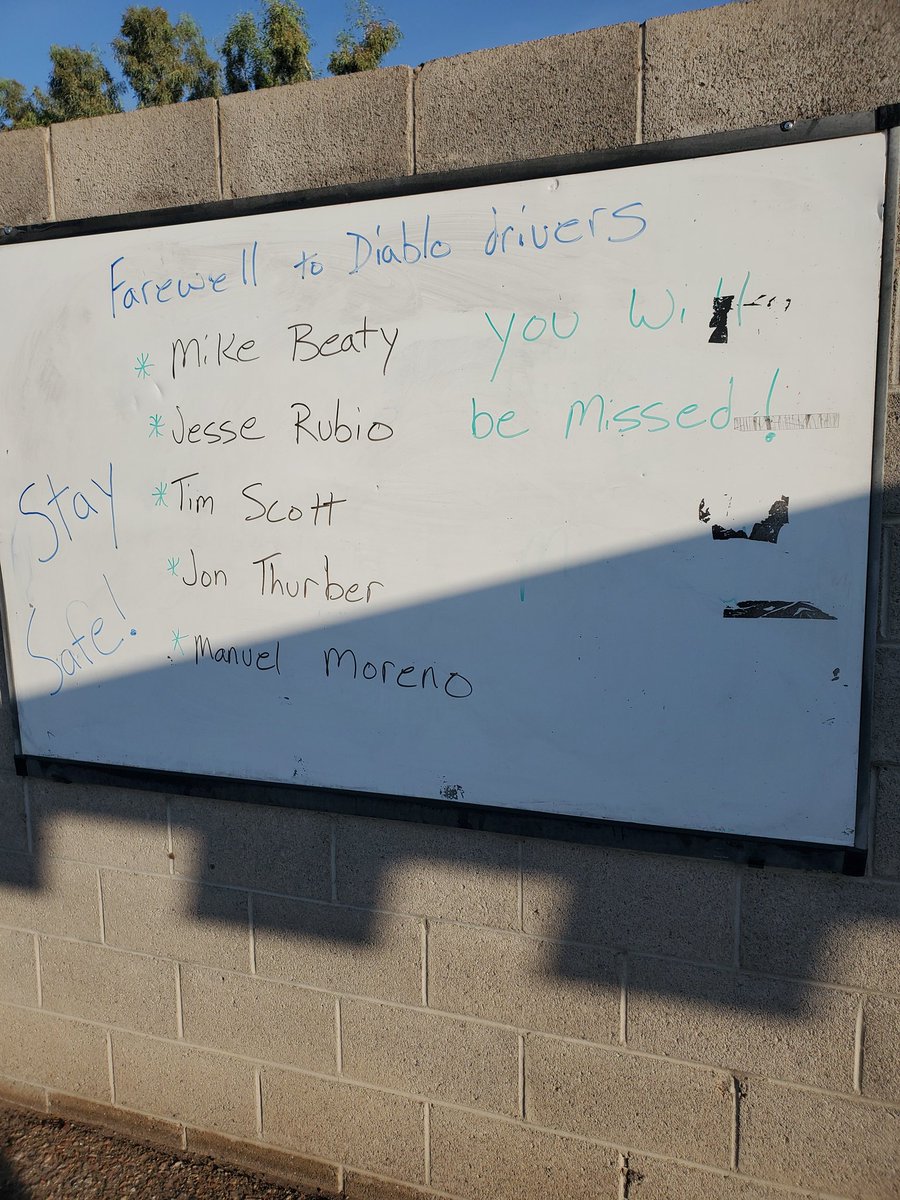 Farewell to Diablo drivers
* Mike Beaty
* Jesse Rubio
* Tim Scott
* Jon Thurber
* Manuel Moreno
you will
be missed!
Stay
Safe!